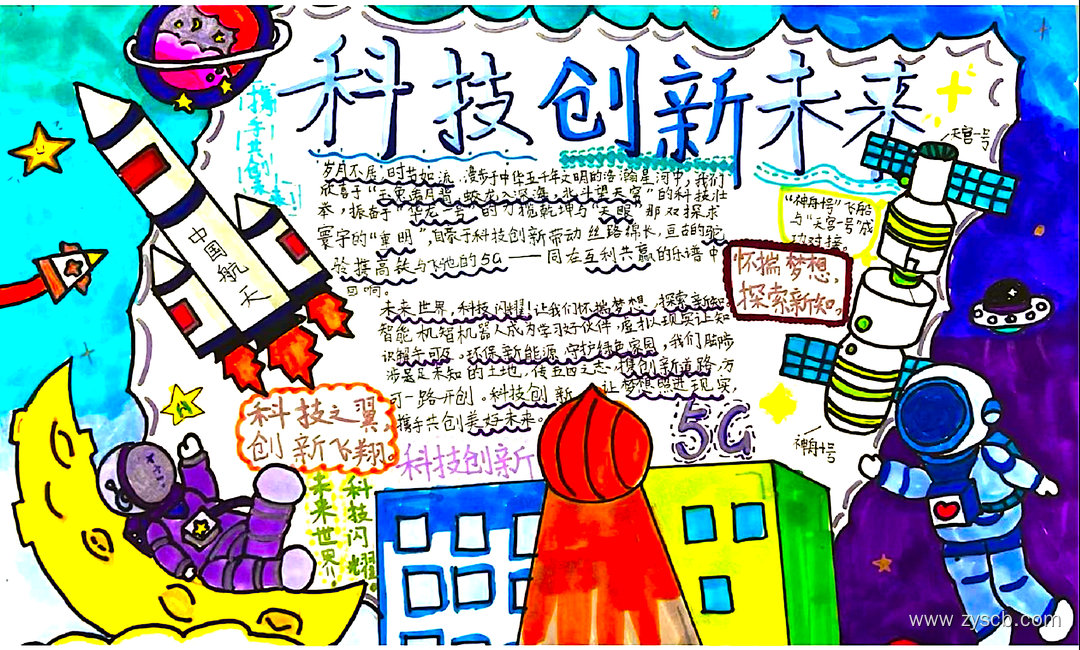 科技创新未来
携手共创未来
岁月不居,时节如流,漫步于中华五千年文明的浩瀚星河中,我们
欣喜于“天宫揽月背,蛟龙入深海,北斗望天穹”的科技壮
举,振奋于“华龙一号”的力揽乾坤与“天眼”那双探求
寰宇的“重明”,自豪于科技创新带动丝路绵长,亘古的驼
铃携高铁与飞驰的5G——同在互利共赢的乐谱中
回响。
未来世界,科技闪耀!让我们怀揣梦想,探索新知
智能机智机器人成为学习好伙伴,虚拟现实让知
识触手可及。环保新能源,守护绿色家园,我们脚步
涉足未知的土地,传五四之志,携创新道路,方
可一路开创。科技创新,让梦想照进现实,
携手共创美好未来。
天宫一号
“神舟号”飞船
与“天宫一号”成
功对接。
怀揣梦想,
探索新知。
神舟号
中国航天
科技之翼,
创新飞翔。
科技创新
5G
科技闪耀
未来世界!
www.zyscb.com